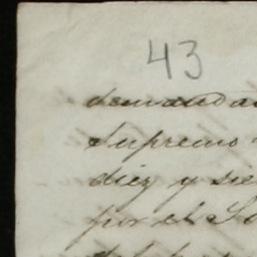 43
demandad
Supremo
diez y sie
por el So